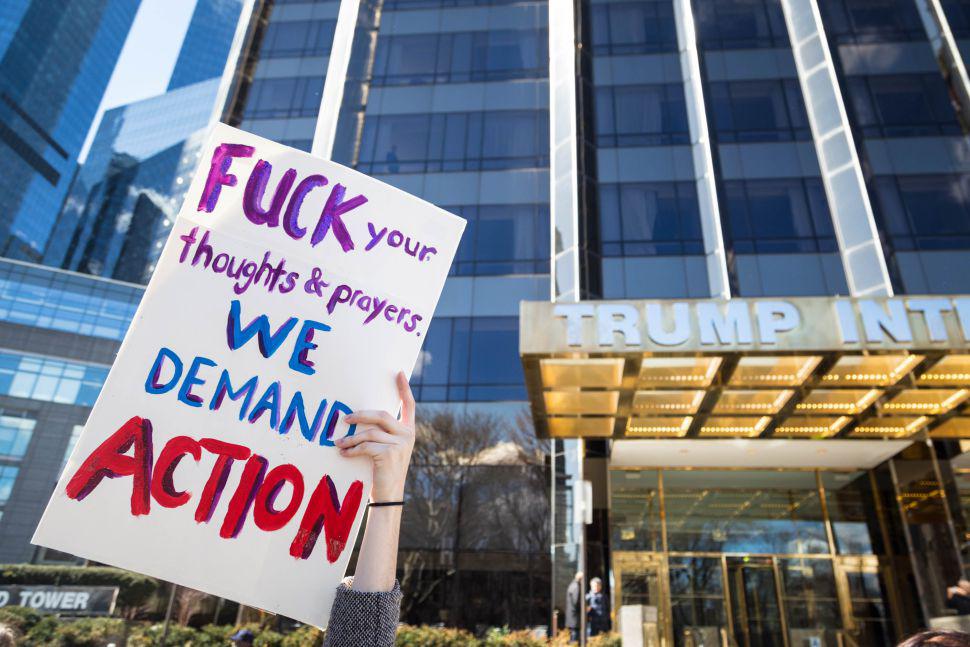 FUCK your
thoughts & prayers.
WE
DEMAND
ACTION
TRUMP INTE
D TOWER